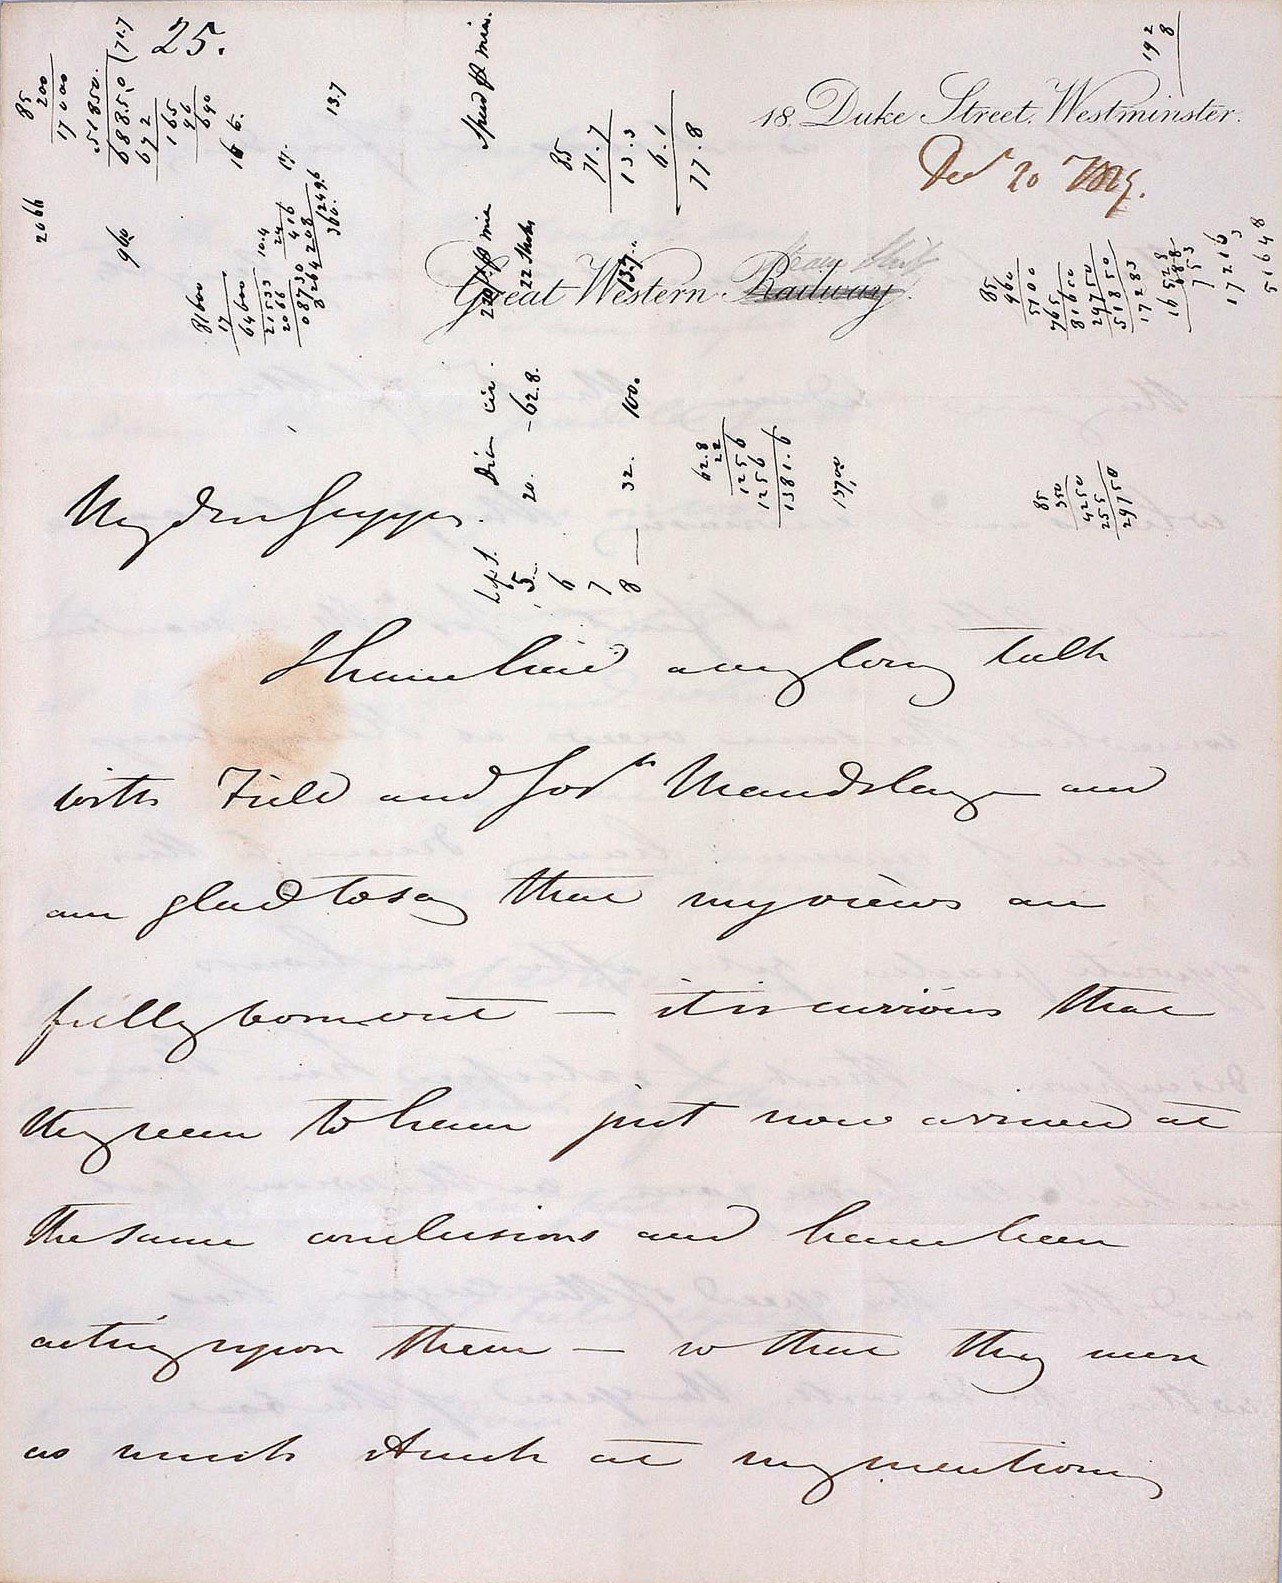 25.
18. Duke Street. Westminster.
Decr 20
Great Western Railway.
Steam Ship
My dear Guppy.
I have had a very long talk
with Field and Josh Maudslay and
am glad to say that my views are
fully borne out — it is curious that
they seem to have just now arrived at
the same conclusions and have been
acting upon them — so that they were
as much struck at my mentioning
85
200
17000
51850.
68850 (71.7
672
165
96
690
16 6.
13.7
2066
960
81600
17
64600
21533
2066
08730
10.4
24
416
208
8264 (249.6
360.
Speed pr min.
85
71.7
13.3
6.1
77.8
22 Strokes
137..
Dia cir.
20. -62.8.
32. 100.
5.
6
7
8 —
62.8
22
1256
1256
1381.6
13700
192
8
85
960
5100
765
81600
29750
51850
17283
16528
688
753
17216
3
51648
85
350
4250
255
29750